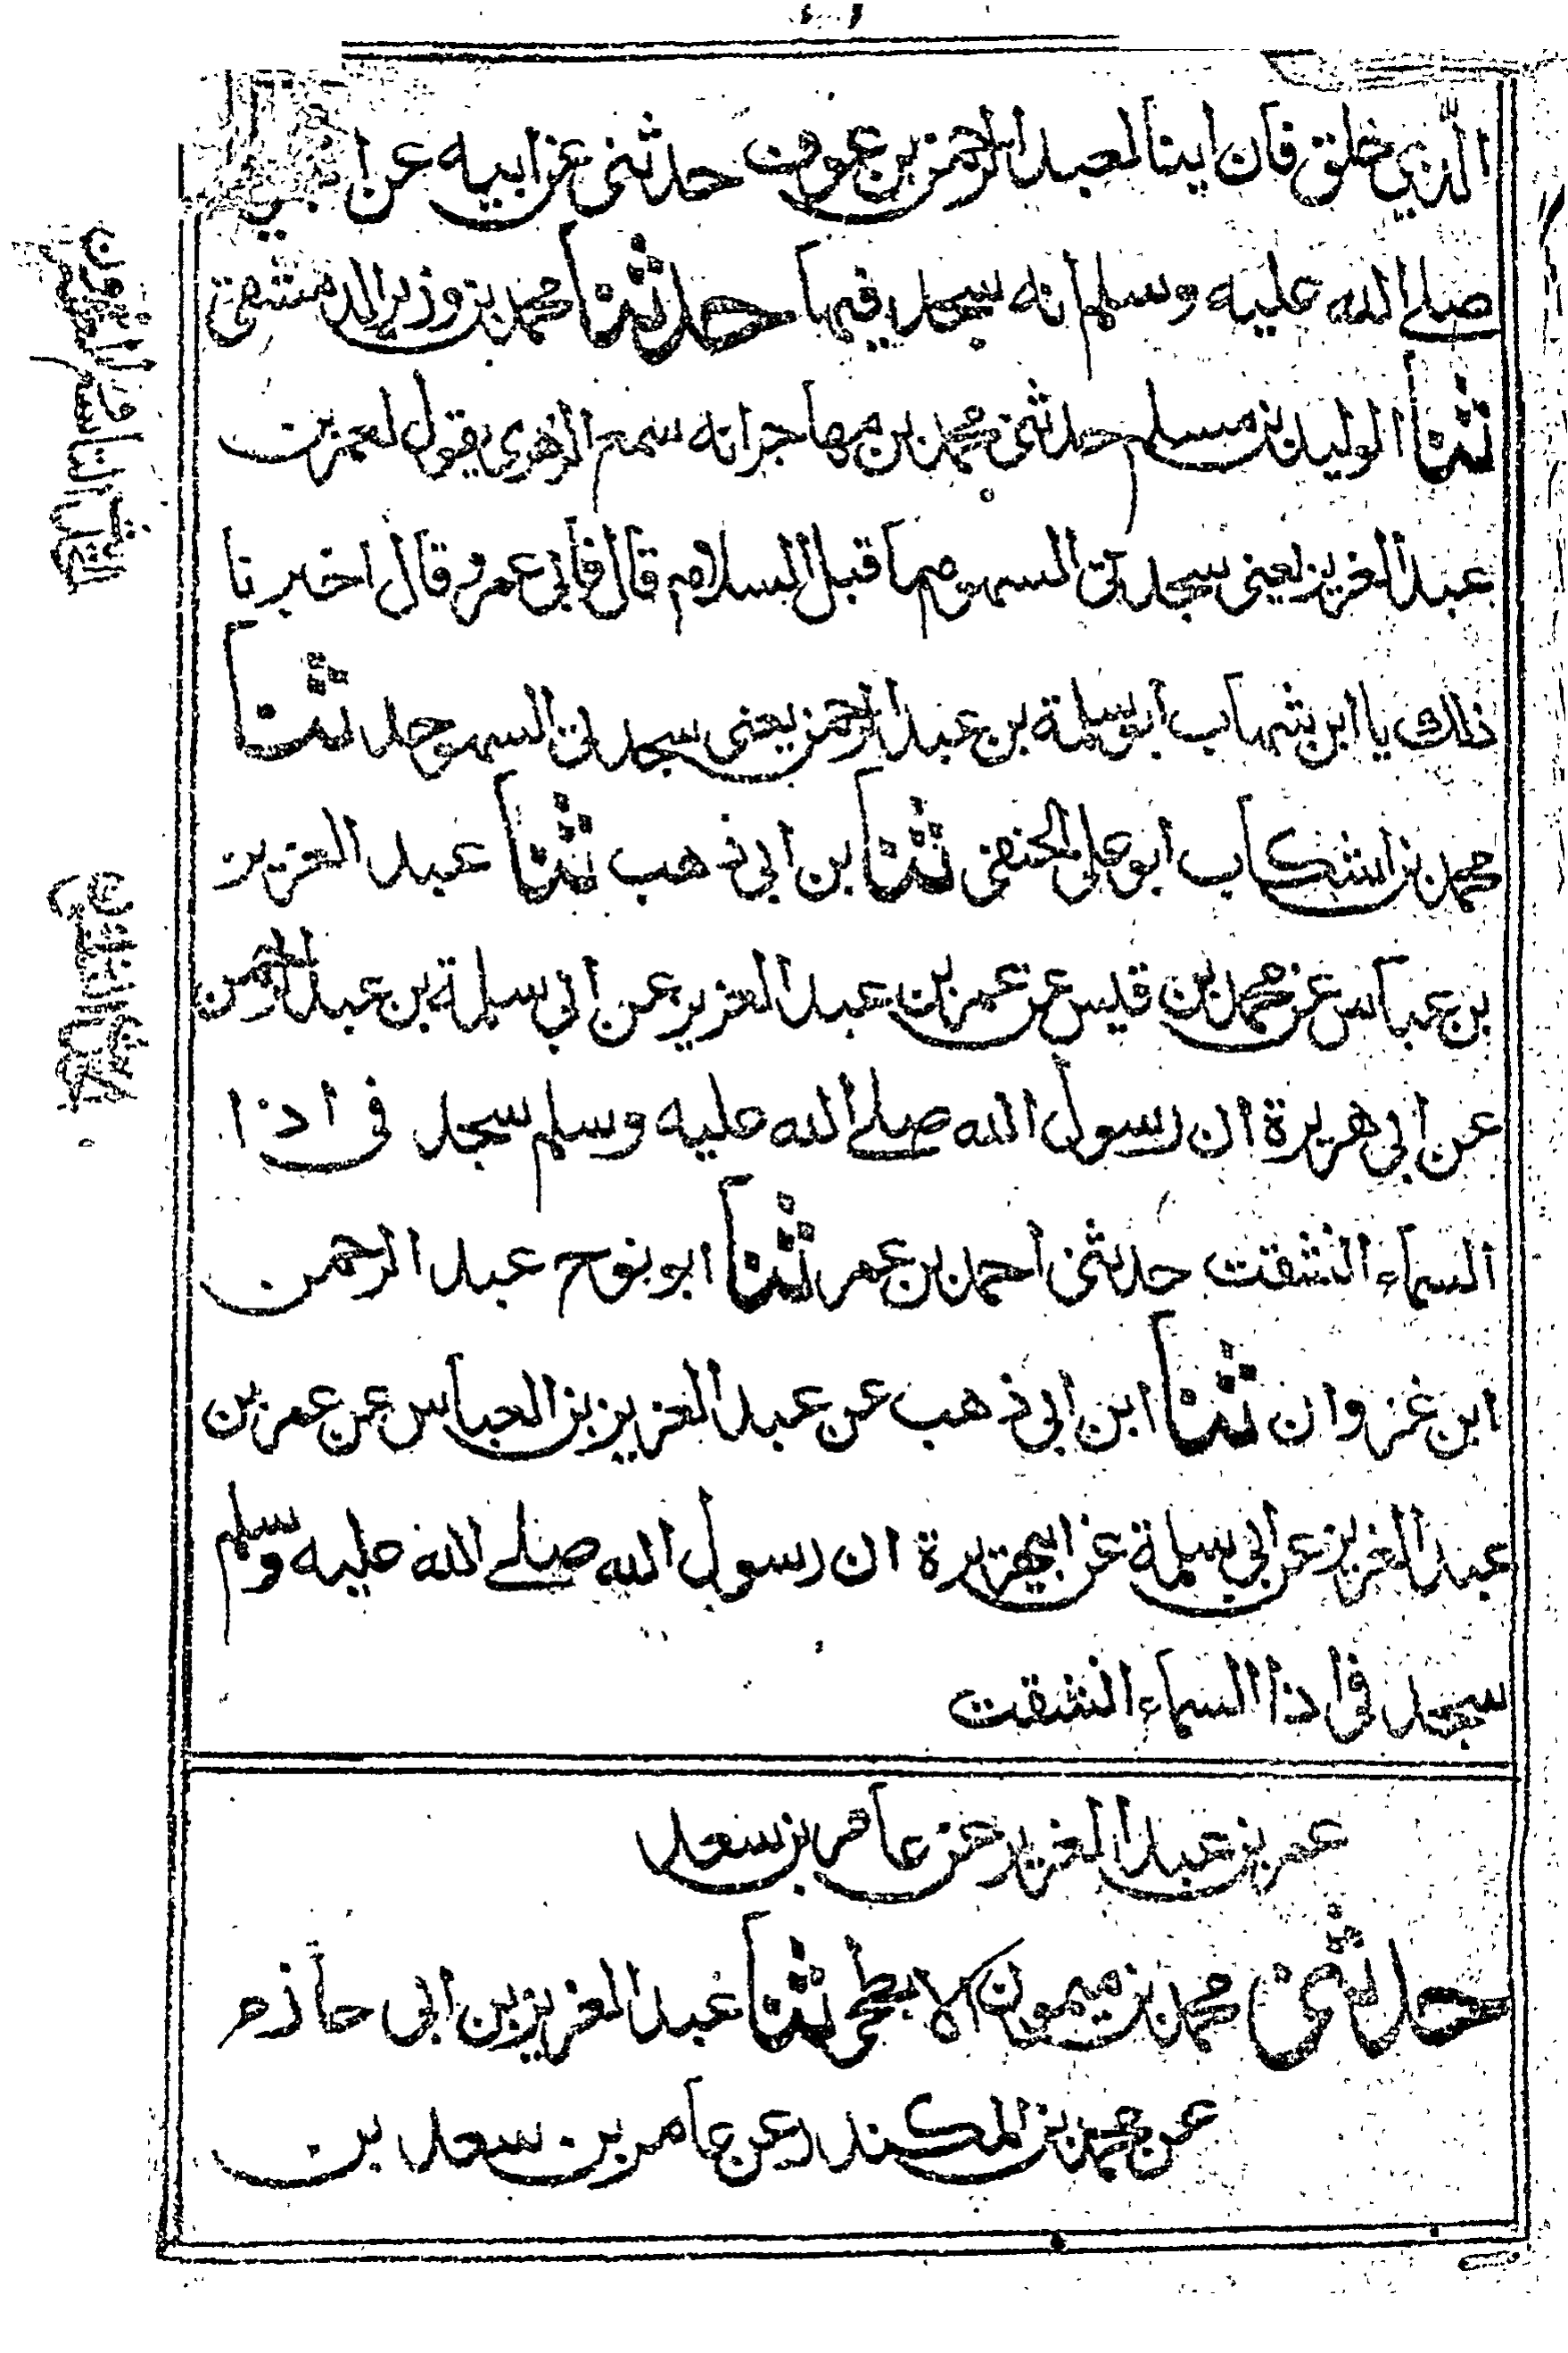 الذي خلق فان ابنا لعبد الرحمن بن عوف حدثني عن ابيه عن
صلے الله عليه وسلم انه سجد فيها حدثنا محمد بن وزير الدمشقي
ثنا الوليد بن مسلم حدثني محمد بن مهاجر انه سمع الزهري يقول لعمر بن
عبد العزيز يعني سجدتي السهو هما قبل السلام قال فابى عمر وقال اخبرنا
ذلك يا ابن شهاب ابو سلمة بن عبد الرحمن يعني سجدتي السهو حدثنا
محمد بن اشكاب ابو علي الحنفي ثنا بن ابي ذهب ثنا عبد العزيز
بن عباس عن محمد بن قيس عن عمر بن عبد العزيز عن ابي سلمة بن عبد الرحمن
عن ابي هريرة ان رسول الله صلے الله عليه وسلم سجد في اذا
السماء انشقت حدثني احمد بن عمر ثنا ابو نوح عبد الرحمن
ابن غزوان ثنا ابن ابي ذهب عن عبد العزيز بن العباس عن عمر بن
عبد العزيز عن ابي سلمة عن ابيهريرة ان رسول الله صلے الله عليه وسلم
سجد في اذا السماء انشقت
عمر بن عبد العزيز عن عامر بن سعد
حدثني محمد بن ميمون الابطحي ثنا عبد العزيز بن ابي حازم
عن محمد بن المكندر عن عامر بن سعد بن